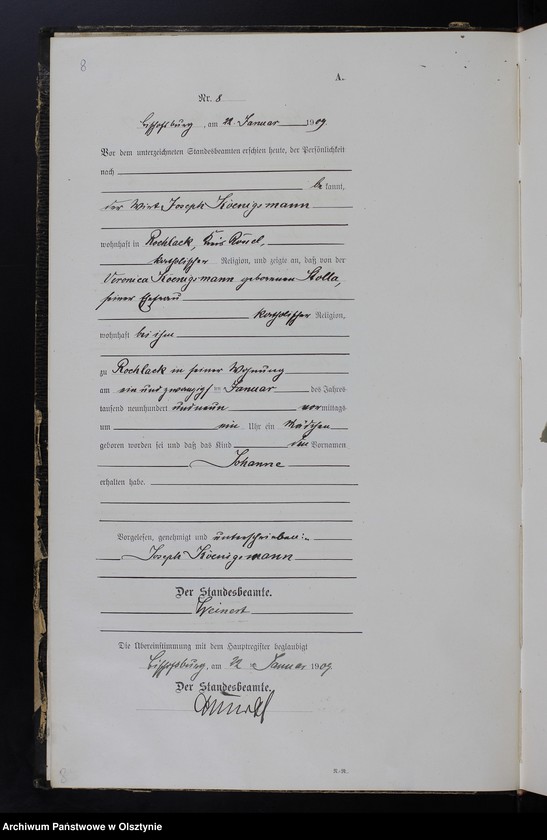 8
A.
Nr. 8
Bischofsburg, am 22. Januar 1909
Vor dem unterzeichneten Standesbeamten erschien heute, der Persönlichkeit
nach
be kannt,
der Wirt Joseph Koenigsmann
wohnhaft in Rochlack, Kreis Rössel,
katholischer Religion, und zeigte an, daß von der
Veronica Koenigsmann geborenen Stolla,
seiner Ehefrau
katholischer Religion,
wohnhaft bei ihm
zu Rochlack in seiner Wohnung
am ein und zwanzigsten Januar des Jahres
tausend neunhundert und neun vormittags
um ein Uhr ein Mädchen
geboren worden sei und daß das Kind den Vornamen
Johanne
erhalten habe.
Vorgelesen, genehmigt und unterschrieben:
Joseph Koenigsmann
Der Standesbeamte.
Weinert
Die Übereinstimmung mit dem Hauptregister beglaubigt
Bischofsburg, am 22 ten Januar 1909
Der Standesbeamte.
8
K.-R.
Archiwum Państwowe w Olsztynie